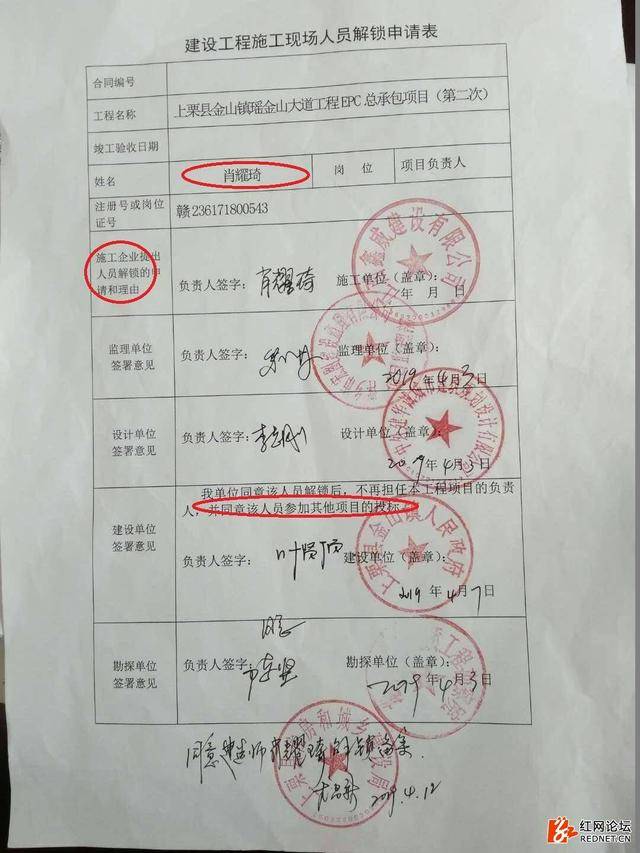 建设工程施工现场人员解锁申请表
合同编号
工程名称
上栗县金山镇瑶金山大道工程EPC 总承包项目（第二次）
竣工验收日期
姓名
肖耀琦
岗 位
项目负责人
注册号或岗位
证号
赣236171800543
施工企业提出
人员解锁的申
请和理由
负责人签字：
肖耀琦
施工单位（盖章）：
年 月 日
鑫威建设有限公司
监理单位
签署意见
负责人签字：
监理单位（盖章）：
2019年4月3日
设计单位
签署意见
负责人签字：
李立刚
设计单位（盖章）：
2019年4月3日
规划设计有限公司
建设单位
签署意见
我单位同意该人员解锁后，不再担任本工程项目的负责
人，并同意该人员参加其他项目的投标。
负责人签字：
建设单位（盖章）：
2019年4月7日
上栗县金山镇人民政府
勘探单位
签署意见
负责人签字：
勘探单位（盖章）：
2019年4月3日
同意建造师肖耀琦解锁备案.
2019.4.12
房和城乡建设局
红网论坛
REDNET.CN